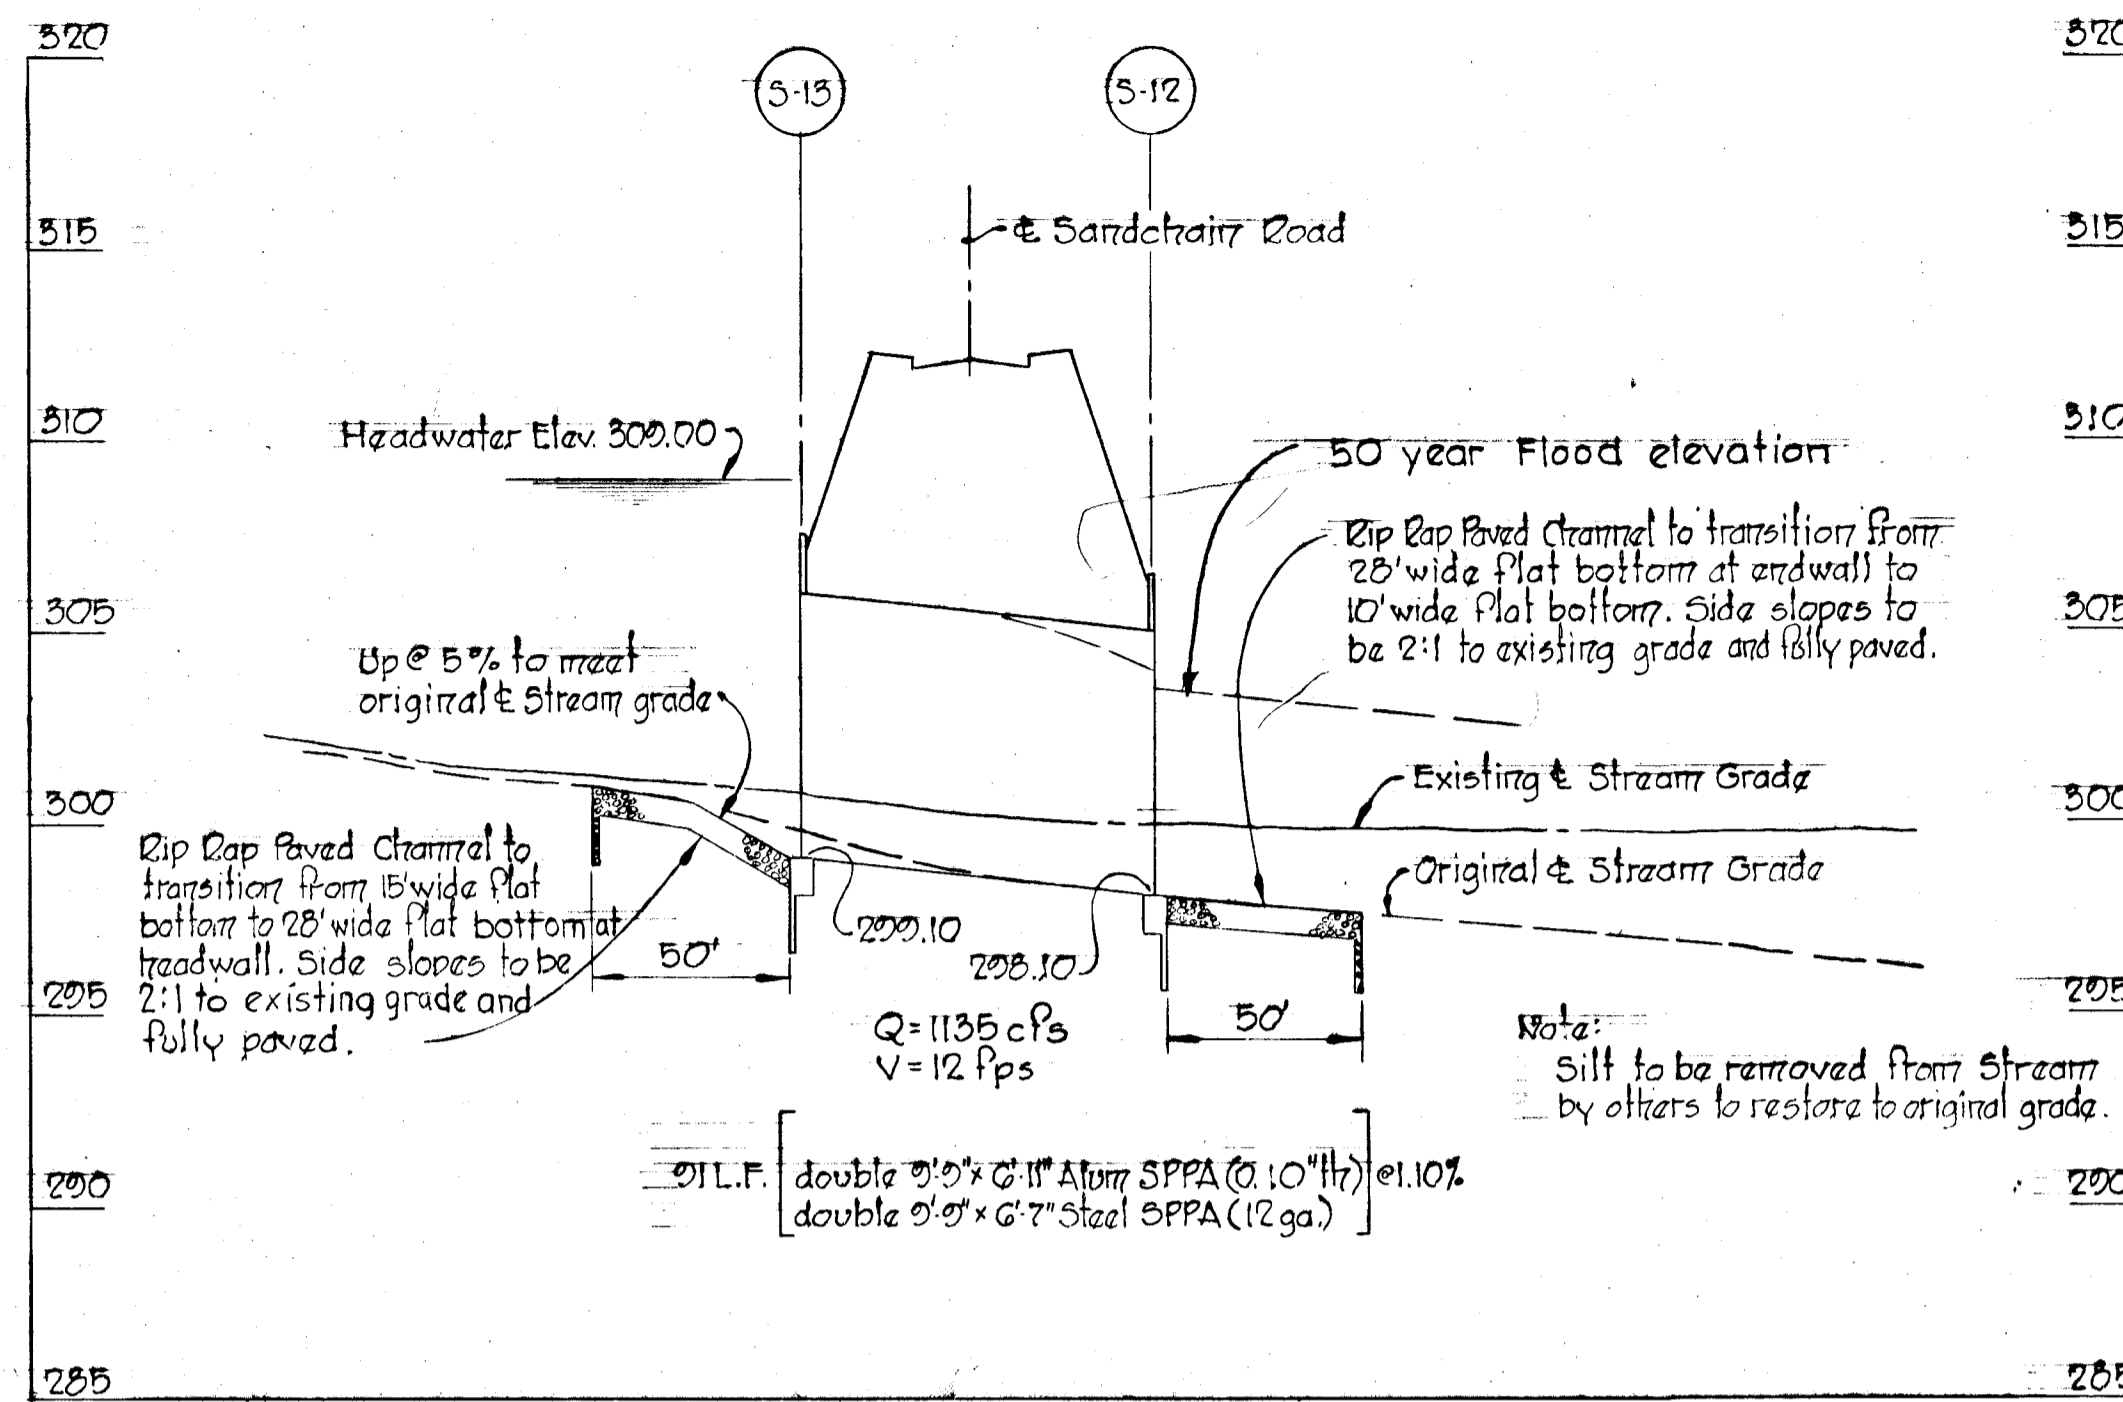 320
320
S-13
S-12
315
℄ Sandchain Road
315
310
Headwater Elev. 309.00
50 year Flood elevation
310
Rip Rap Paved Channel to transition from
28' wide flat bottom at endwall to
10' wide flat bottom. Side slopes to
be 2:1 to existing grade and fully paved.
305
305
Up @ 5% to meet
original ℄ Stream grade
Existing ℄ Stream Grade
300
300
Rip Rap Paved Channel to
transition from 15' wide flat
bottom to 28' wide flat bottom at
headwall. Side slopes to be
2:1 to existing grade and
fully paved.
Original ℄ Stream Grade
299.10
298.10
50'
50'
295
295
Q = 1135 cfs
V = 12 fps
Note:
Silt to be removed from Stream
by others to restore to original grade.
91 L.F. double 9'-9" x 6'-11" Alum SPPA (0.10" th) @ 1.10%
double 9'-9" x 6'-7" Steel SPPA (12 ga.)
290
290
285
285